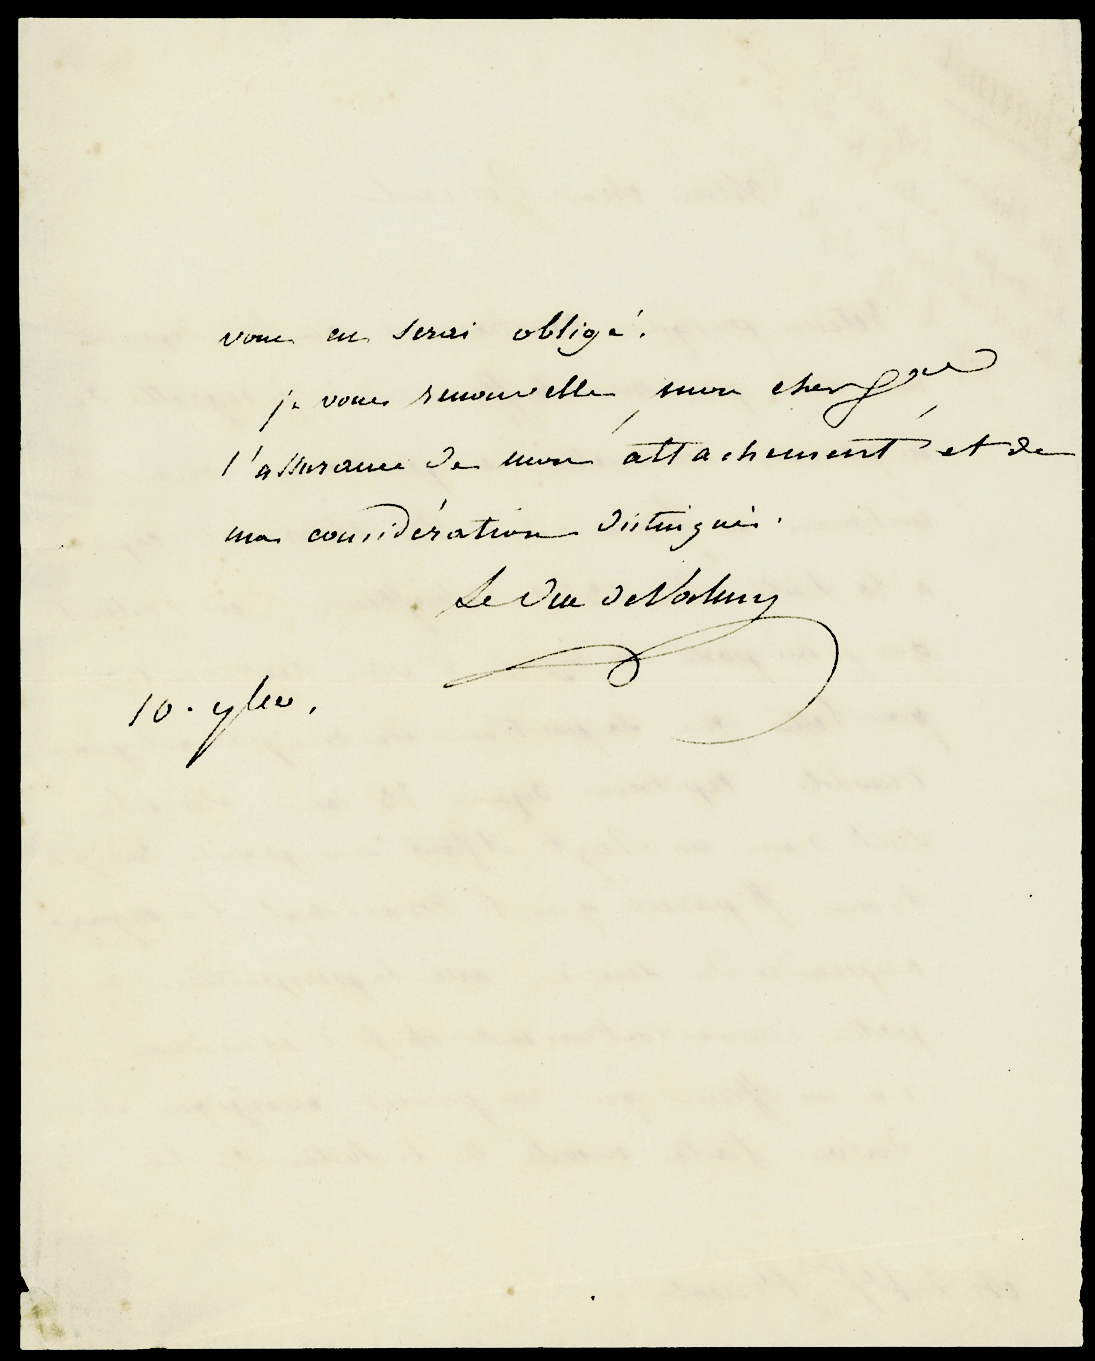 vous en serai obligé.
je vous renouvelle, mon cher gal
l'assurance de mon attachement et de
ma considération distinguée.
Le Duc de Valmy
10. 9bre.